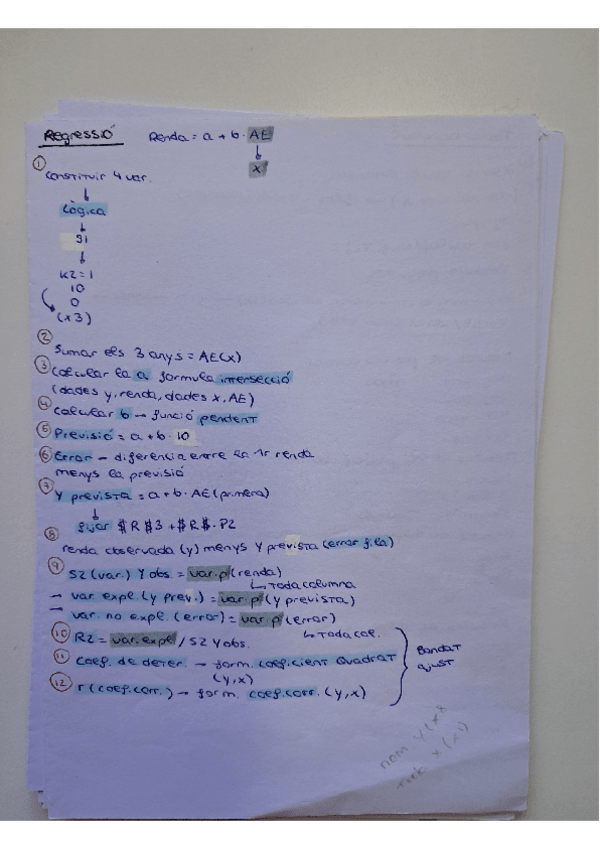 Regressió Renda = a + b · AE
↓
x
① Constituir 4 var.
↓
Lògica
↓
SI
↓
K2=1
10
0
(x3)
② Sumar els 3 anys = AE(x)
③ Calcular la a formula intersecció
(dades y, renda, dades x, AE)
④ Calcular b → funció pendent
⑤ Previsió = a + b · 10
⑥ Error – diferencia entre la 1r renda
menys la previsió
⑦ Y prevista = a + b · AE (primera)
↓
fijar $R$3 + $R$. P2
⑧ renda observada (y) menys Y prevista (error fila)
⑨ S2 (var.) Y obs. = var.p (renda)
↳ Toda columna
→ var expl. (y prev.) = var.p (y prevista)
→ var. no expl. (error) = var.p (error)
↳ Toda col.
⑩ R2 = var. expl / S2 Y obs.
⑪ Coef. de deter. → form. coeficient Quadrat
(y,x)
⑫ r (coef. corr.) → form. coef. corr. (y,x)
Bondat
ajust
nom Y(x
x (x)